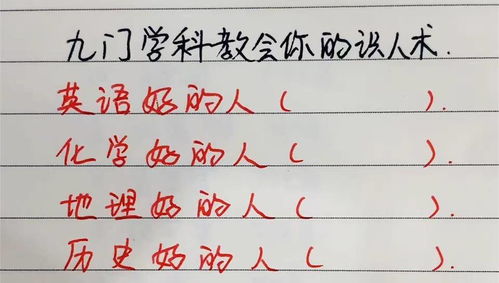 九门学科教会你的识人术.
英语好的人（ ）.
化学好的人（ ）.
地理好的人（ ）.
历史好的人（ ）.